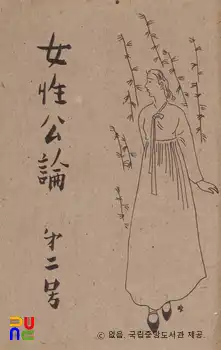 女性公論
第二号
ⓒ 없음, 국립중앙도서관 제공